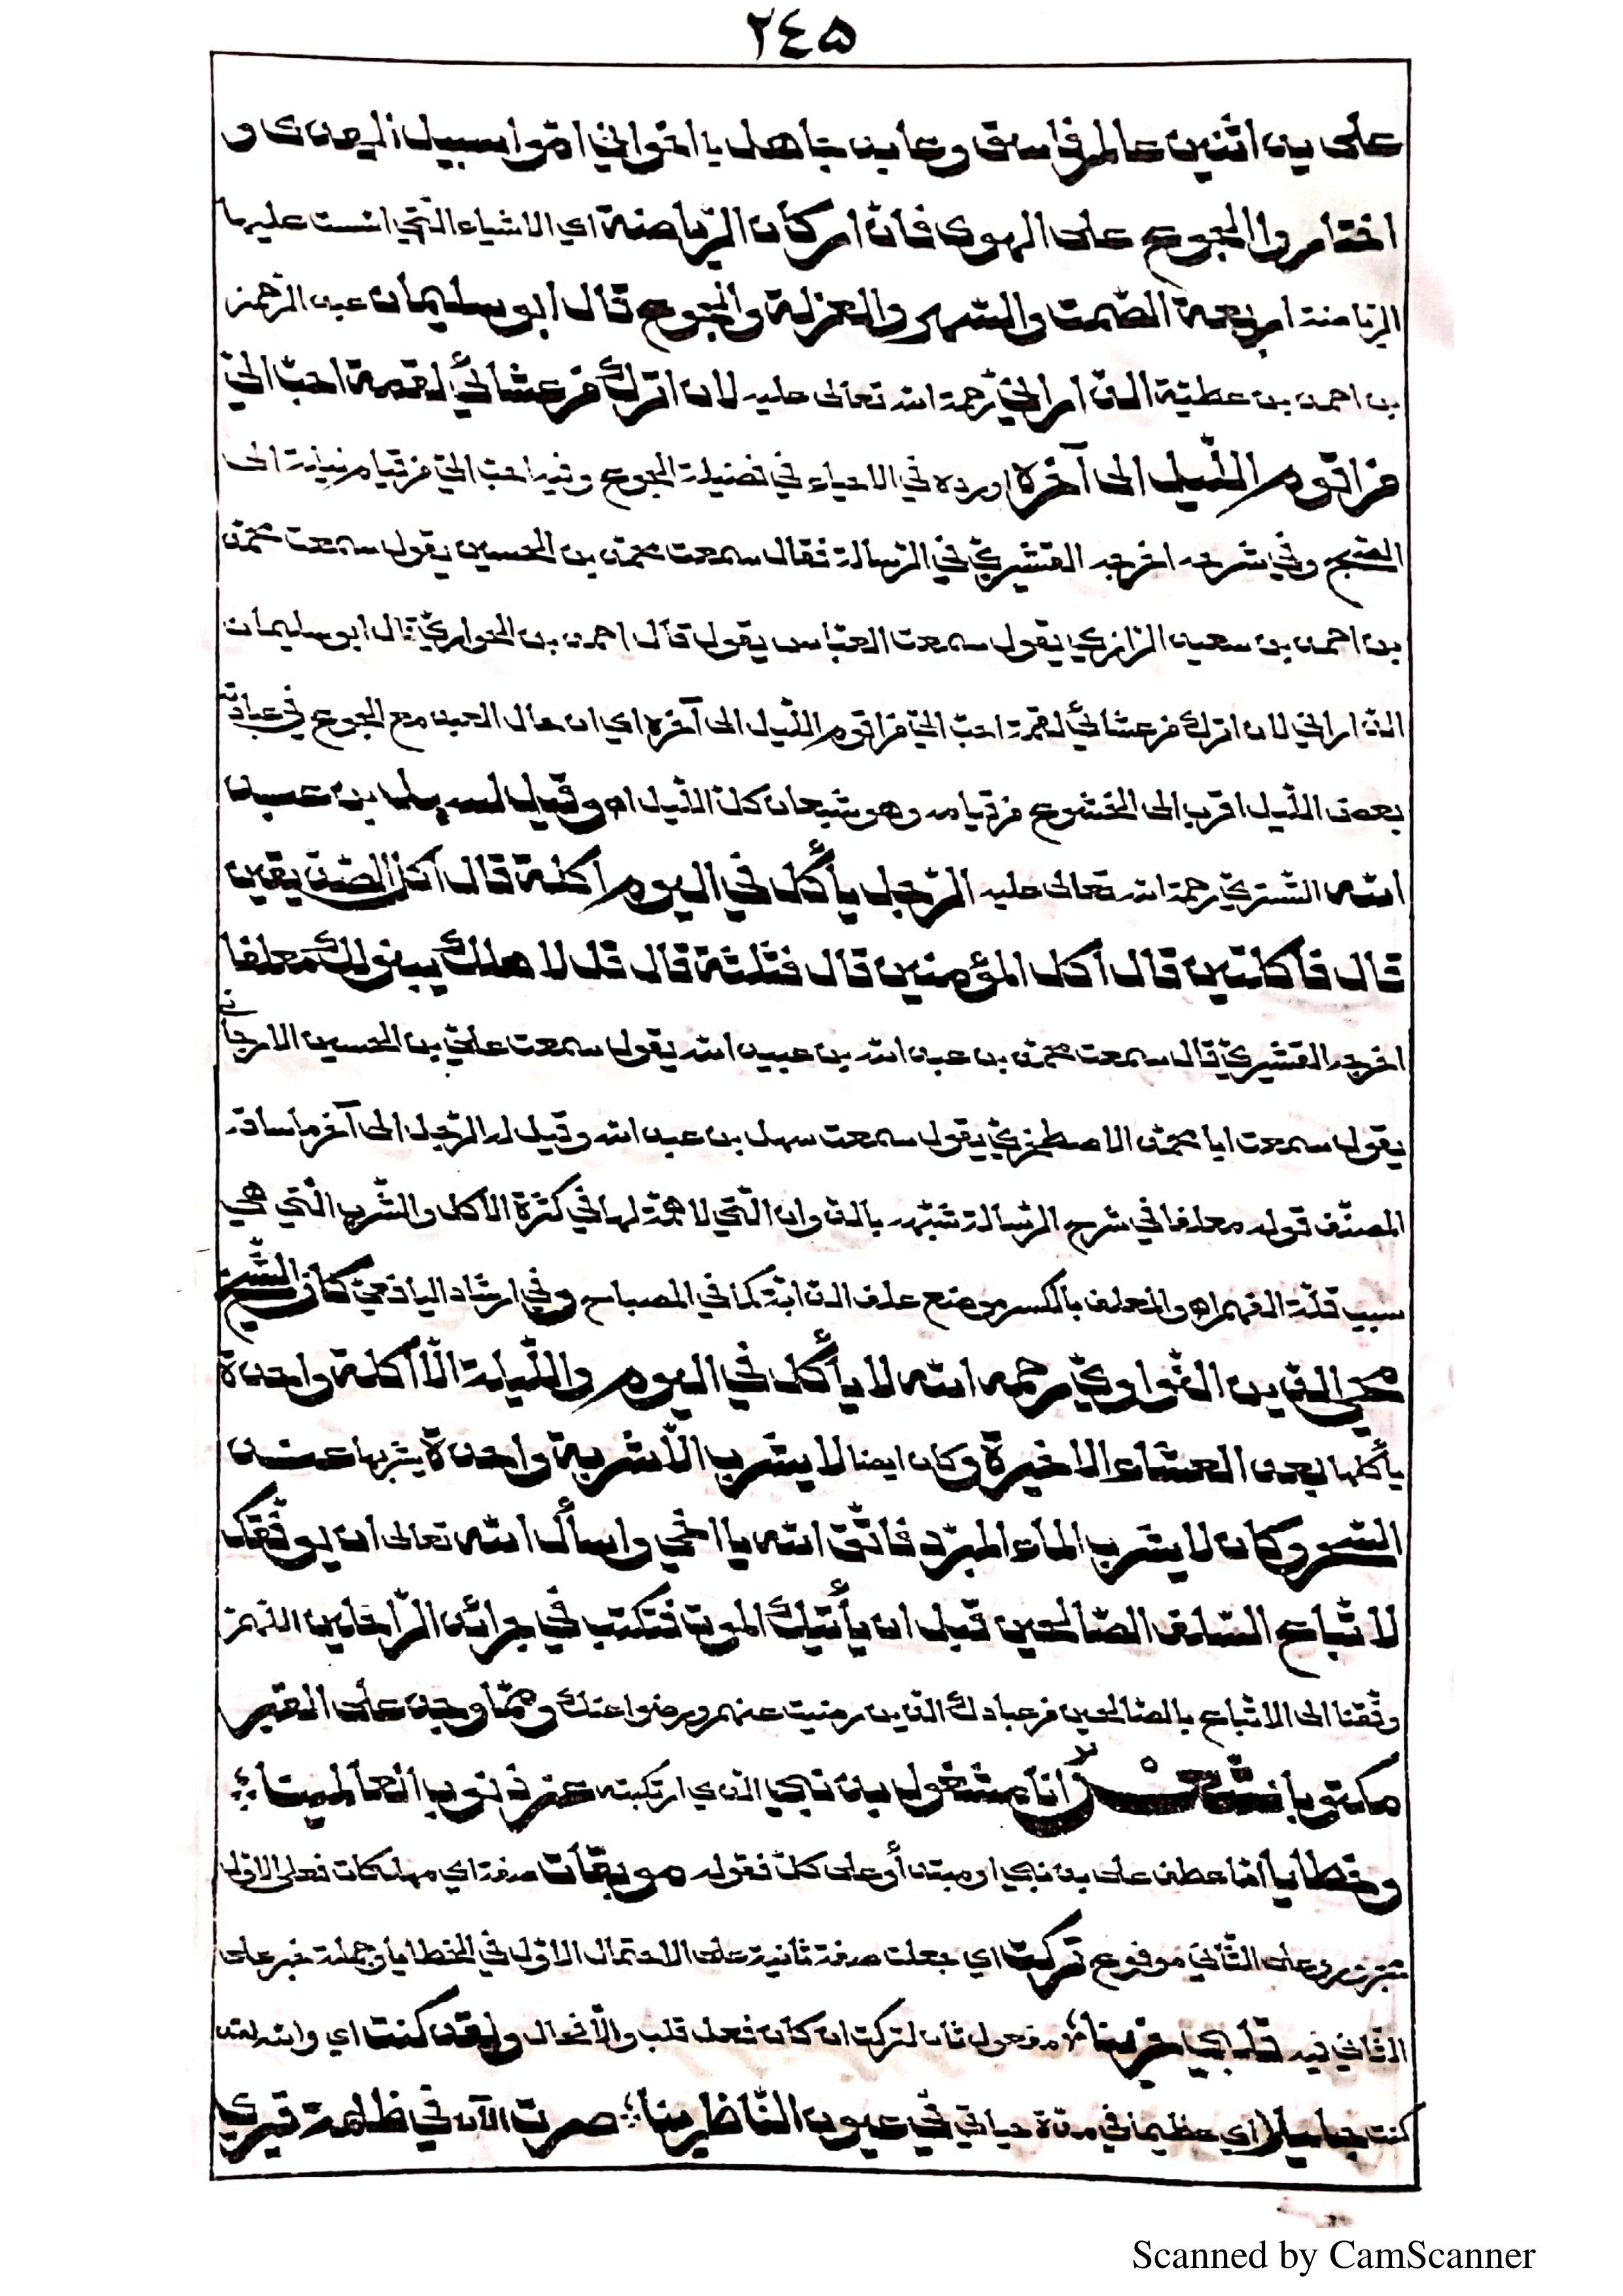 ٢٤٥
على يد اثنين عالم فاسق وعابد جاهل يا اخواني امّوا سبيل الهدى و
اختاروا الجوع على الهوى فانّ اركان الرّياضة اي الاشياء الّتي اسّست عليها
الرياضة اربعة الصّمت والسّهر والعزلة والجوع قال ابو سليمان عبد الرحمن
بن احمد بن عطيّة الدّارانيّ رحمة الله تعالى عليه لان اترك من عشائي لقمة احبّ اليّ
من اقوم اللّيل الى آخره اورده في الاحياء في فضيلة الجوع وفيه احبّ اليّ من قيام ليلة الى
الصّبح وفي شرحه اخرجه القشيريّ في الرّسالة فقال سمعت محمّد بن الحسين يقول سمعت محمّد
بن احمد بن سعيد الرّازي يقول سمعت العبّاس يقول قال احمد بن الحواريّ قال ابو سليمان
الدّاراني لان اترك من عشائي لقمة احبّ اليّ من اقوم اللّيل الى آخره اي ان حال العبد مع الجوع في عبادته
بعض اللّيل اقرب الى الخشوع من قيامه وهو شبعان كلّ اللّيل اه وقيل لسهل بن عبد
الله التّستريّ رحمة الله تعالى عليه الرّجل يأكل في اليوم أكلة قال اكل الصّدّيقين
قال فأكلتين قال اكل المؤمنين قال فثلثة قال قل لاهلك يبنوا لك معلفا
اخرجه القشيريّ قال سمعت محمّد بن عبد الله بن عبيد الله يقول سمعت عليّ بن الحسين الارجاني
يقول سمعت ابا محمّد الاصطخريّ يقول سمعت سهل بن عبد الله وقيل له الرّجل الى آخر ما ساقه
المصنّف قوله معلفا في شرح الرّسالة شبّهه بالدّواب الّتي لا همّة لها في كثرة الاكل والشّرب الّتي هي
سبب قلّة الفهم اه والمعلف بالكسر موضع علف الدّابّة كما في المصباح وفي ارشاد اليافعيّ كان الشّيخ
محي الدّين النّواويّ رحمه الله لا يأكل في اليوم واللّيلة الّا أكلة واحدة
يأكلها بعد العشاء الاخيرة وكان ايضا لا يشرب الّا شربة واحدة يشربها عند
السّحر وكان لا يشرب الماء المبرّد فاتّق الله يا اخي واسأل الله تعالى ان يوفّقك
لاتّباع السّلف الصّالحين قبل ان يأتيك الموت فتكتب في جرائد الرّاحلين اللّهمّ
وفّقنا الى الاتّباع بالصّالحين من عبادك الّذين رضيت عنهم ورضوا عنك وممّا وجد على القبر
مكتوبا انا مشغول بذنبي الذي ارتكبته عن ذنوب العالمينا
وخطايا امّا عطف على بذنبي او مبتدأ وعلى كلّ فقوله موبقات صفة اي مهلكات فعلى الاوّل
مجرور وعلى الثّاني مرفوع تركت اي جعلت صفة ثانية على الاحتمال الاوّل في الخطايا وجملة خبر على
الثّاني فيه قلبي حزينا مفعول ثان لتركت ان كان فعل قلب والّا فحال ولقد كنت اي والله لقد
كنت جليلا اي عظيما في مدّة حياتي في عيون النّاظرينا صرت الآن في ظلمة قبري
Scanned by CamScanner